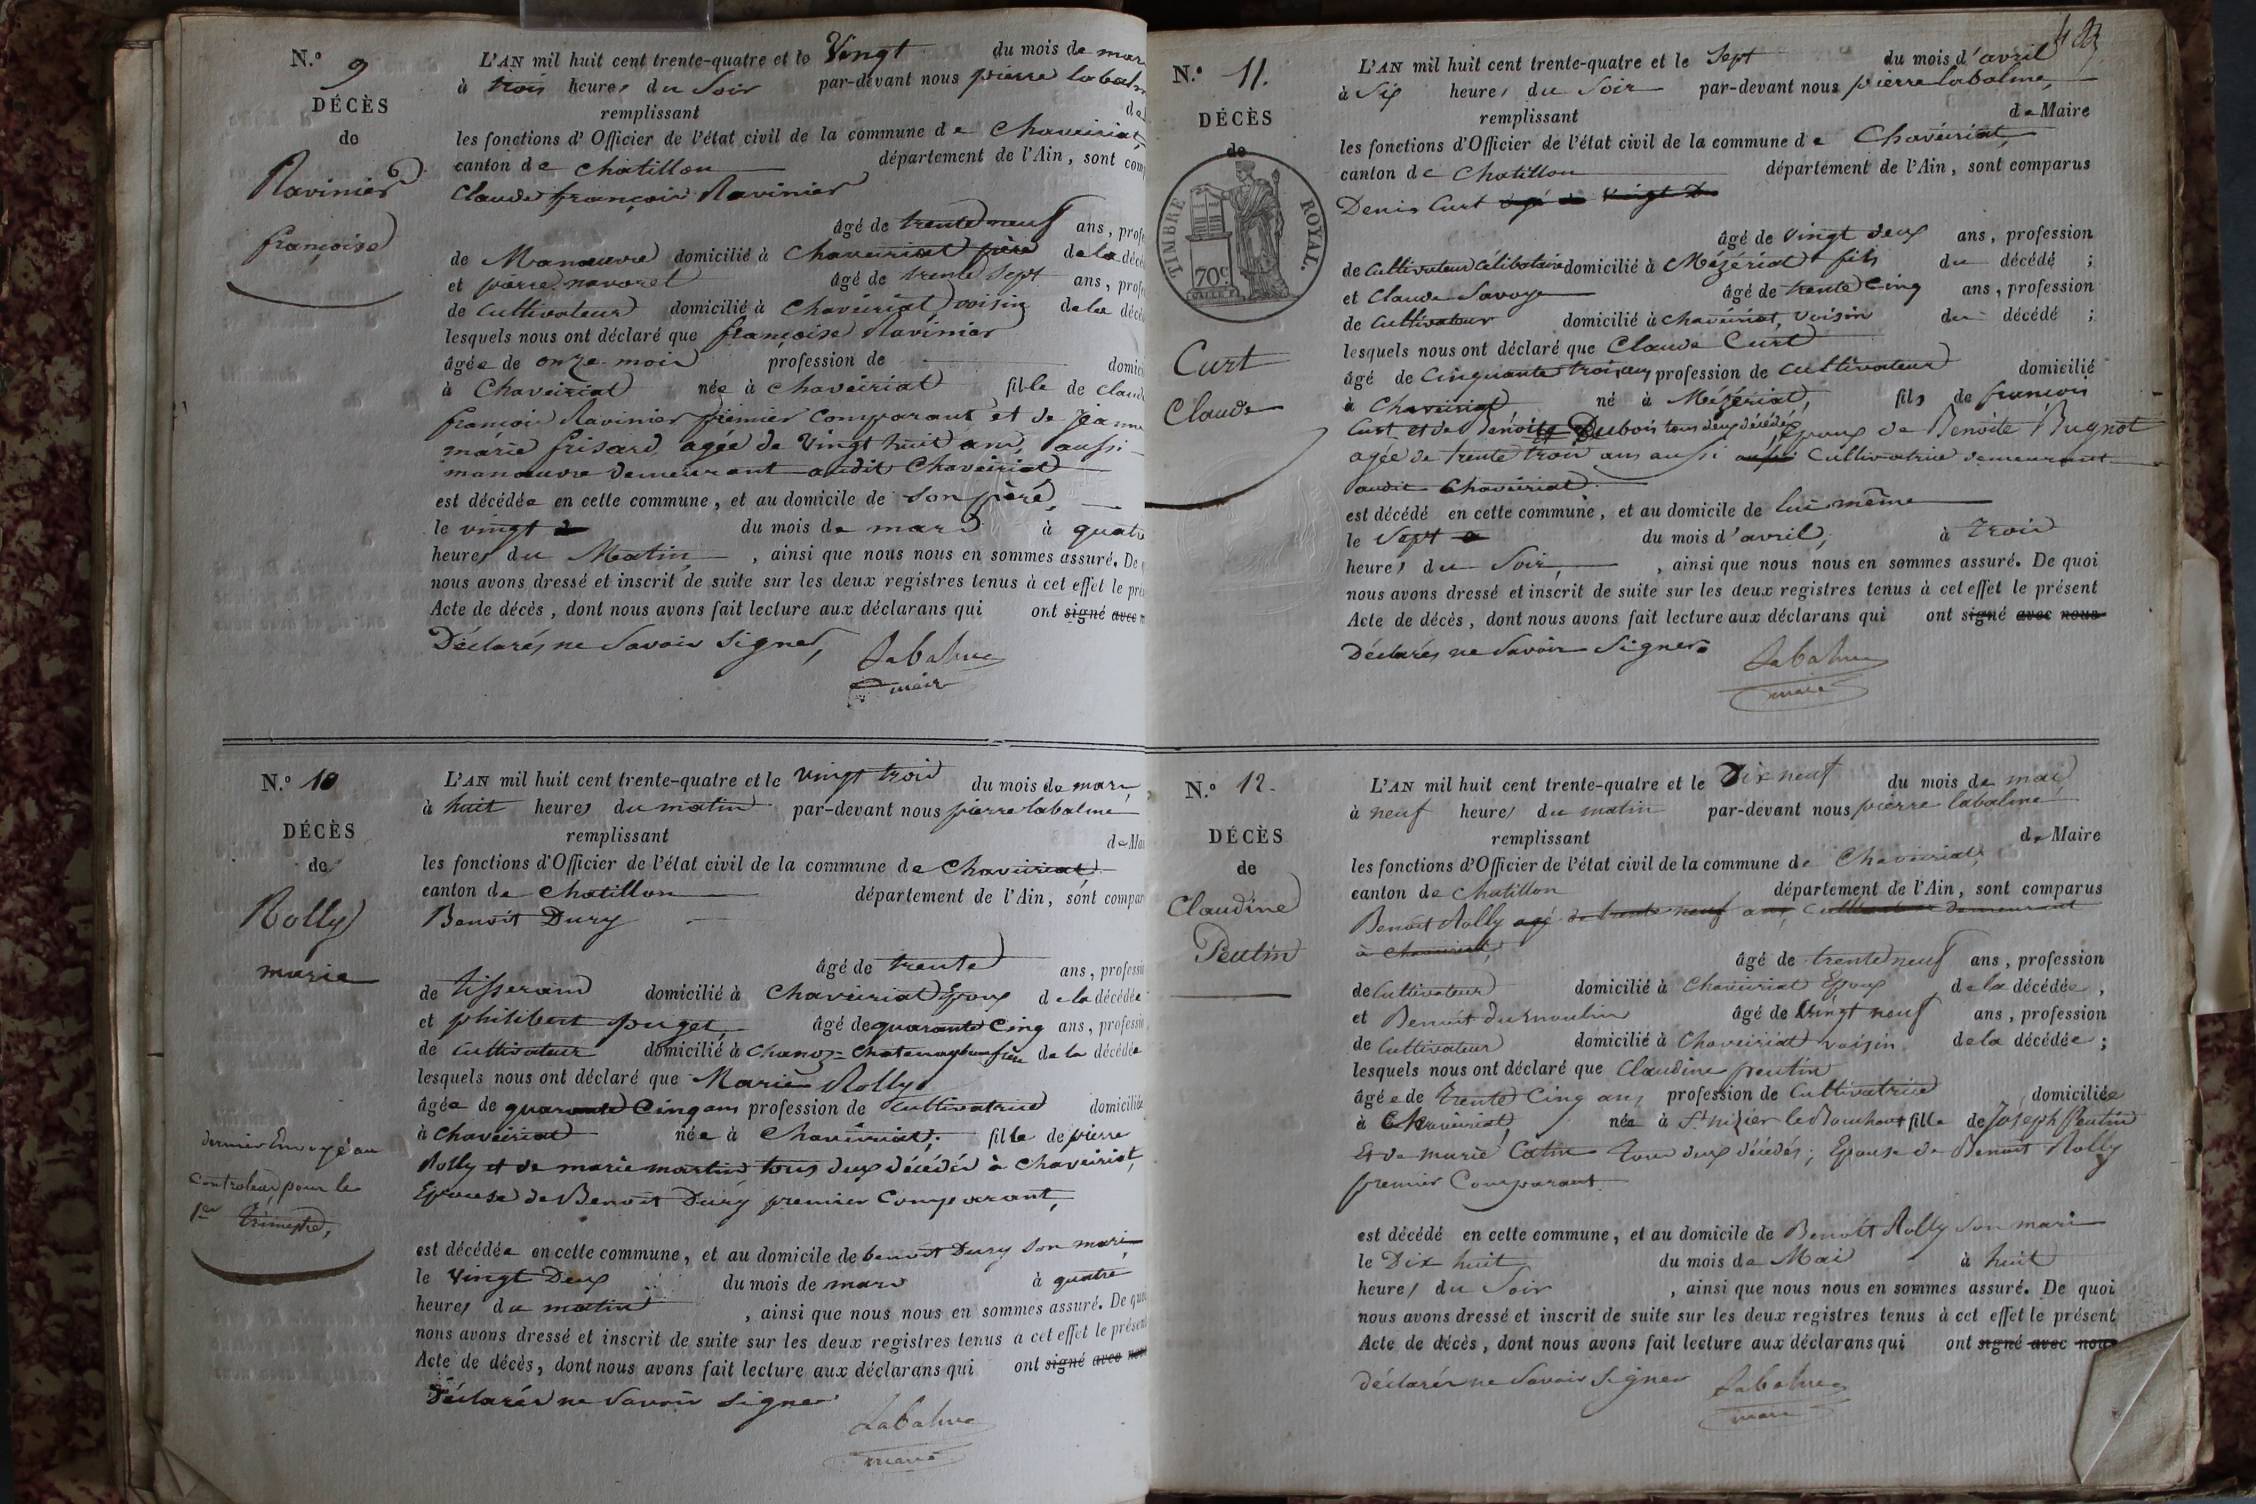 N.o 9
DÉCÈS
de
Ravinier
françoise
L'AN mil huit cent trente-quatre et le Vingt du mois de mar
à trois heures du Soir par-devant nous pierre labal
remplissant de
les fonctions d'Officier de l'état civil de la commune de Chaveiriat,
canton de Chatillon département de l'Ain, sont com
Claude françois Ravinier
âgé de trente neuf ans, profe
de Manœuvre domicilié à Chaveiriat père de la décé
et pierre navoret âgé de trente sept ans, profe
de Cultivateur domicilié à Chavéiriat, voisin de la décé
lesquels nous ont déclaré que françoise Ravinier
âgée de onze mois profession de domici
à Chaveiriat née à Chaveiriat fille de claud
françois Ravinier premier Comparant et de jeanne
marie frisard, agée de Vingt huit ans, aussi
manœuvre demeurant audit Chaveiriat
est décédée en cette commune, et au domicile de son père,
le vingt du mois de mars à quatre
heures du Matin, ainsi que nous nous en sommes assuré. De
nous avons dressé et inscrit de suite sur les deux registres tenus à cet effet le pré
Acte de décès, dont nous avons fait lecture aux déclarans qui ont signé avec n
Déclarés ne Savoir Signer, Labalme
maire
N.o 10
DÉCÈS
de
Rolly
marie
dernier Envoyé au
Controleur, pour le
1er trimestre,
L'AN mil huit cent trente-quatre et le vingt trois du mois de mars,
à huit heures du matin par-devant nous pierre labalme
remplissant de Mai
les fonctions d'Officier de l'état civil de la commune de Chaveiriat
canton de Chatillon département de l'Ain, sont compar
Benoit Dury
âgé de trente ans, professi
de tisserand domicilié à Chaveiriat Epoux de la décédée
et philibert puget, âgé de quarante Cinq ans, profession
de Cultivateur domicilié à Chanoz-Chatenay beaufrère de la décédée
lesquels nous ont déclaré que Marie Rolly
âgée de quarante Cinq ans profession de Cultivatrice domiciliée
à Chaveiriat née à Chaveiriat; fille de pierre
Rolly et de marie martin, tous deux décédés à Chaveiriat,
Epouse de Benoit Dury premier Comparant,
est décédée en cette commune, et au domicile de benoit Dury son mari,
le Vingt Deux du mois de mars à quatre
heures du matin, ainsi que nous nous en sommes assuré. De quo
nous avons dressé et inscrit de suite sur les deux registres tenus à cet effet le présen
Acte de décès, dont nous avons fait lecture aux déclarans qui ont signé avec nou
Déclarés ne Savoir Signer
Labalme
maire
N.o 11.
DÉCÈS
de
TIMBRE ROYAL.
70 c.
Curt
Claude
L'AN mil huit cent trente-quatre et le Sept du mois d'avril
à Six heures du Soir par-devant nous pierre labalme,
remplissant de Maire
les fonctions d'Officier de l'état civil de la commune de Chavéiriat,
canton de Chatillon département de l'Ain, sont comparus
Denis Curt agé de vingt D
âgé de vingt deux ans, profession
de Cultivateur Célibataire domicilié à Mézériat fils du décédé ;
et Claude Savoye âgé de trente Cinq ans, profession
de Cultivateur domicilié à Chavéiriat, voisin du décédé ;
lesquels nous ont déclaré que Claude Curt
âgé de Cinquante trois ans profession de Cultivateur domicilié
à Chaveiriat né à Mézériat, fils de françois
Curt et de Bénoite Dubois tous deux décédés, Epoux de Benoite Bugnot
agée de trente trois ans aussi aussi Cultivatrice demeurant
audit Chavéiriat.
est décédé en cette commune, et au domicile de lui même
le Sept du mois d'avril, à trois
heures du Soir, ainsi que nous nous en sommes assuré. De quoi
nous avons dressé et inscrit de suite sur les deux registres tenus à cet effet le présent
Acte de décès, dont nous avons fait lecture aux déclarans qui ont signé avec nous
Déclarés ne Savoir Signer. Labalme
maire
N.o 12.
DÉCÈS
de
Claudine
Peutin
L'AN mil huit cent trente-quatre et le Dix neuf du mois de mai
à neuf heures du matin par-devant nous pierre labalme
remplissant de Maire
les fonctions d'Officier de l'état civil de la commune de Chaveiriat,
canton de Chatillon département de l'Ain, sont comparus
Benoit Rolly agé de trente neuf ans Cultivateur demeurant
à Chaveiriat,
âgé de trente neuf ans, profession
de Cultivateur domicilié à Chaveiriat Epoux de la décédée,
et Benoit Dumoulin âgé de Vingt neuf ans, profession
de Cultivateur domicilié à Chaveiriat voisin de la décédée ;
lesquels nous ont déclaré que Claudine peutin
âgée de trente Cinq ans profession de Cultivatrice domiciliée
à Chaveiriat, née à St nizier le Bouchoux fille de Joseph Peutin
Et de marie Catin tous deux décédés; Epouse de Benoit Rolly
premier Comparant
est décédé en cette commune, et au domicile de Benoit Rolly Son mari
le Dix huit du mois de Mai à huit
heures du Soir, ainsi que nous nous en sommes assuré. De quoi
nous avons dressé et inscrit de suite sur les deux registres tenus à cet effet le présent
Acte de décès, dont nous avons fait lecture aux déclarans qui ont signé avec nous
Déclarés ne Savoir Signer Labalme
maire